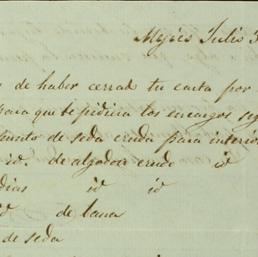 Mejico Julio 3
s de haber cerrado tu carta por
para que te pidiera los encargos seg
punto de seda cruda para interio
id. de algodon crudo id
dias id id
id de lana
de seda